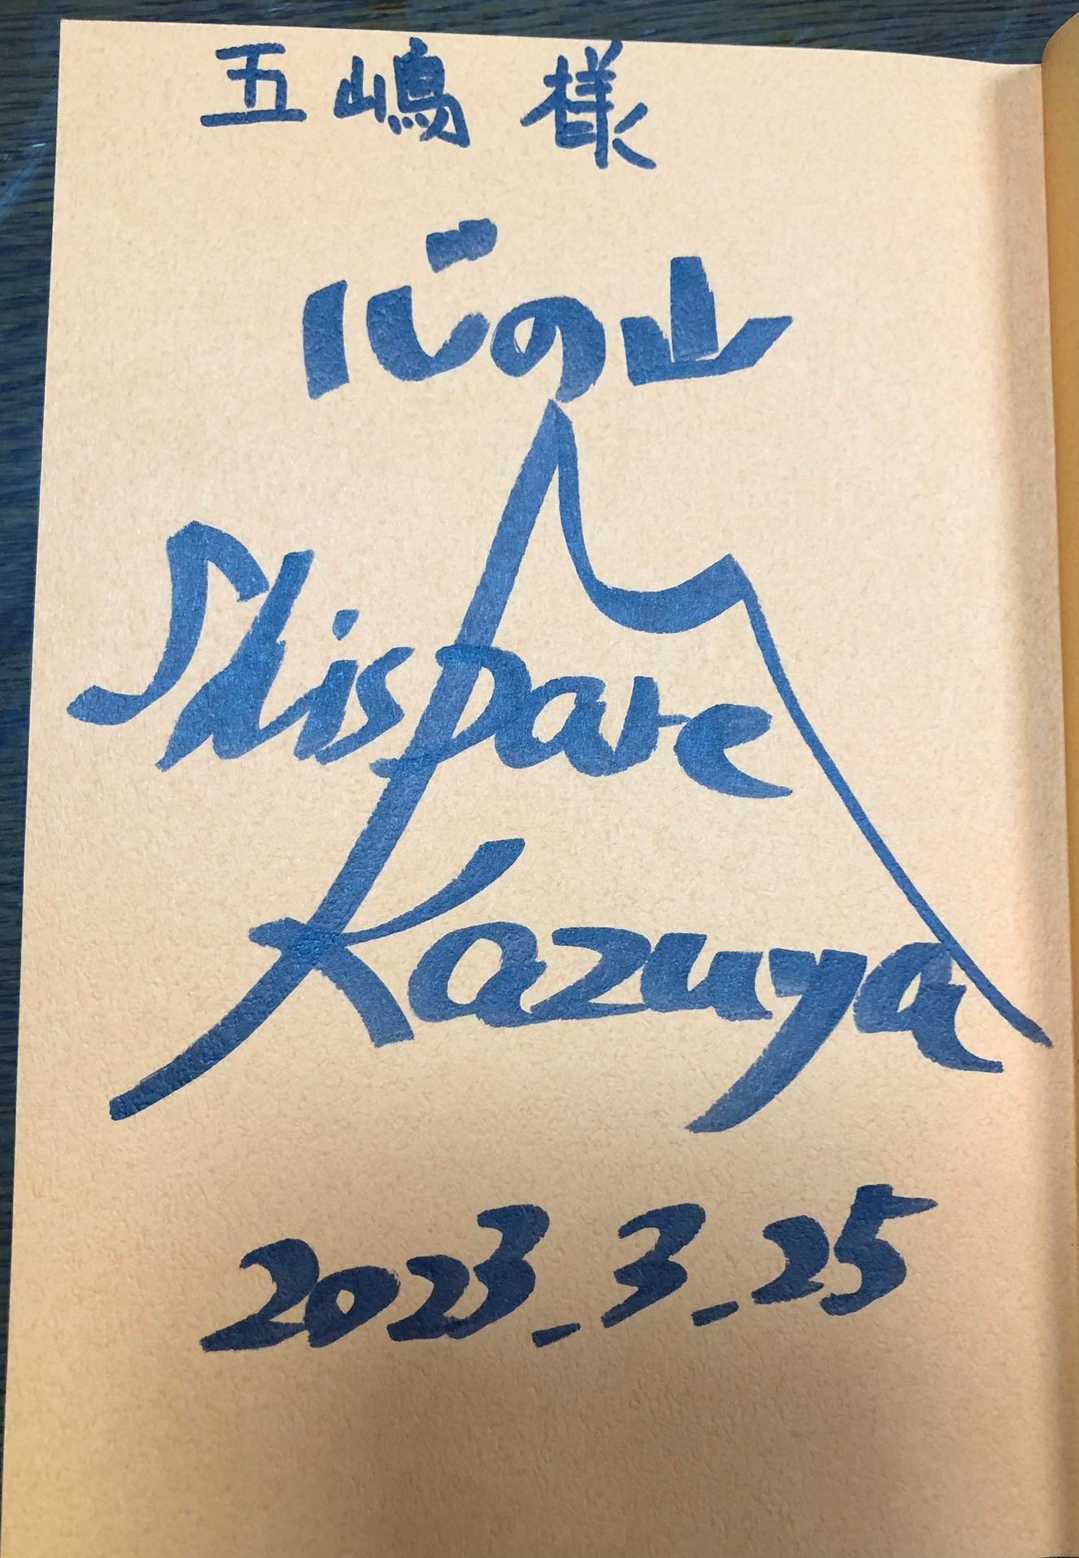 五嶋 様
心の山
Shispare
Kazuya
2023.3.25